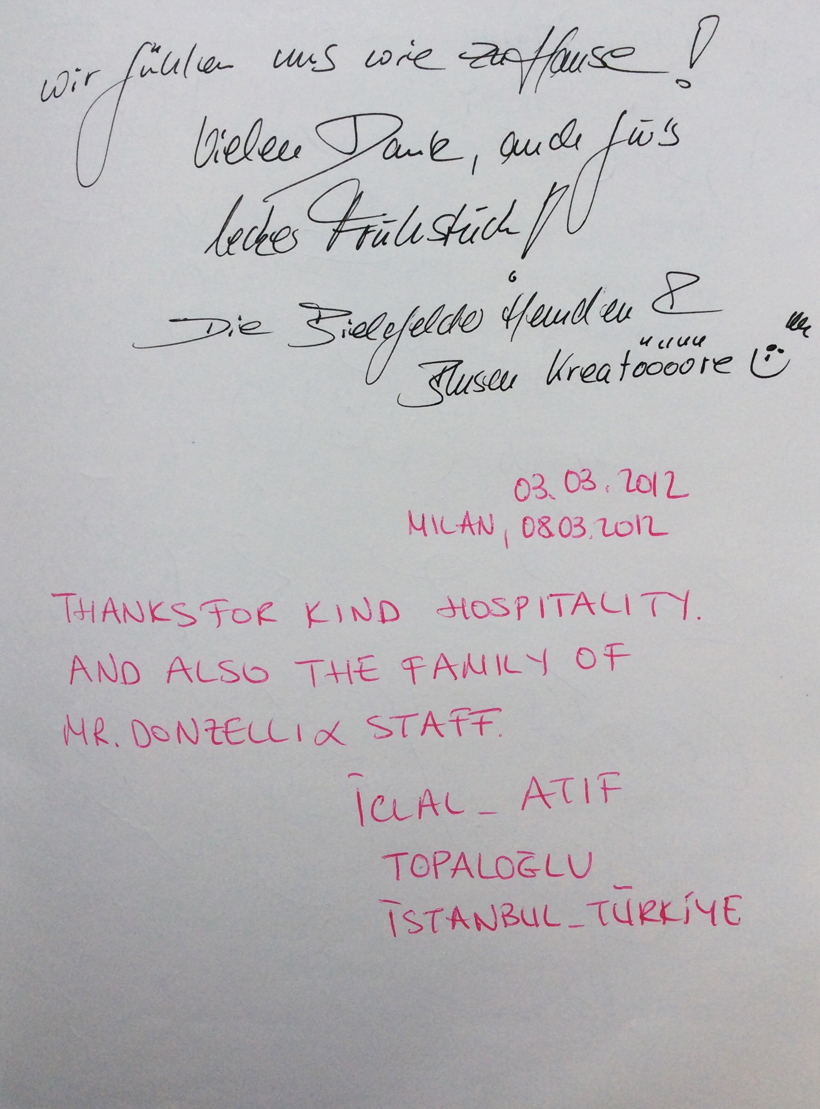 wir fühlen uns wie zu Hause!
Vielen Dank, auch für's
leckes Frühstück!
Die Bielefelder Hemden &
Blusen Kreatööööre
03.03.2012
MILAN, 08.03.2012
THANKS FOR KIND HOSPITALITY.
AND ALSO THE FAMILY OF
MR. DONZELLI & STAFF.
İCLAL_ ATIF
TOPALOĞLU
İSTANBUL_TÜRKİYE